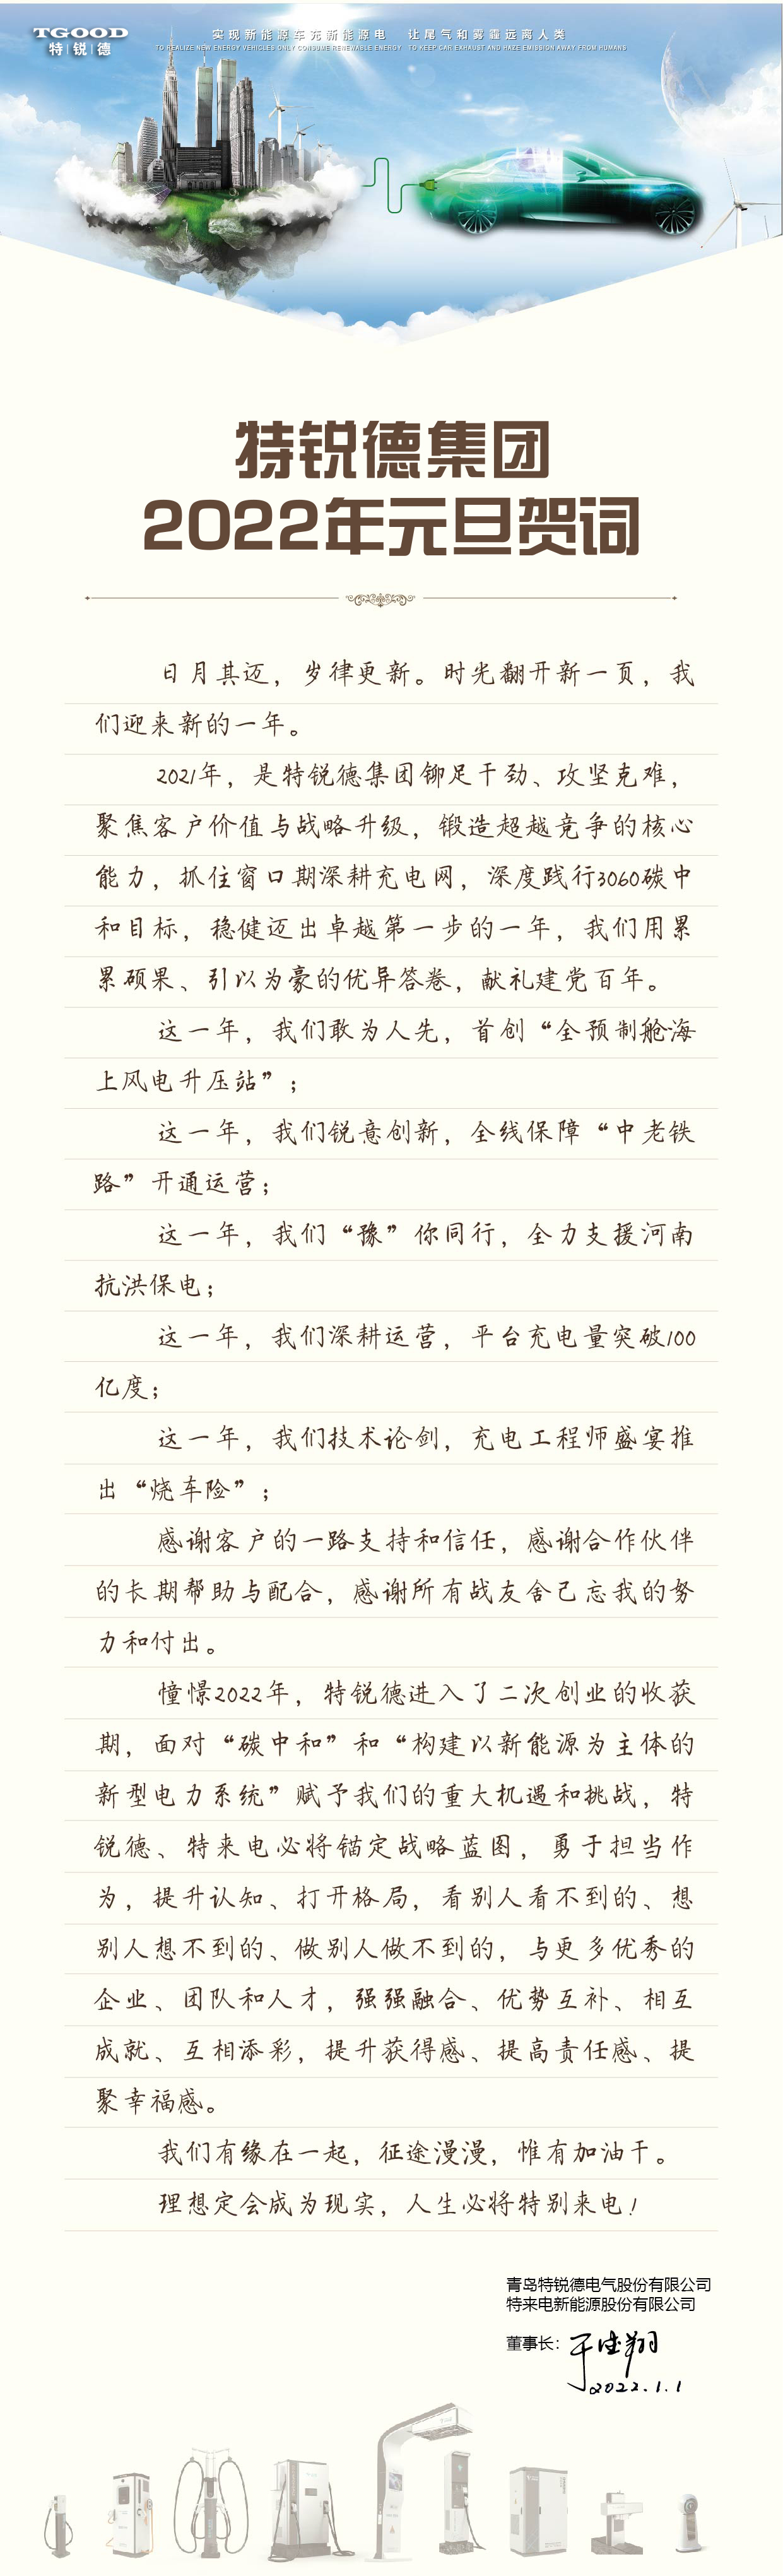 TGOOD
特|锐|德
实现新能源车充新能源电 让尾气和雾霾远离人类
TO REALIZE NEW ENERGY VEHICLES ONLY CONSUME RENEWABLE ENERGY TO KEEP CAR EXHAUST AND HAZE EMISSION AWAY FROM HUMANS
特锐德集团
2022年元旦贺词
日月其迈，岁律更新。时光翻开新一页，我
们迎来新的一年。
2021年，是特锐德集团铆足干劲、攻坚克难，
聚焦客户价值与战略升级，锻造超越竞争的核心
能力，抓住窗口期深耕充电网，深度践行3060碳中
和目标，稳健迈出卓越第一步的一年，我们用累
累硕果、引以为豪的优异答卷，献礼建党百年。
这一年，我们敢为人先，首创“全预制舱海
上风电升压站”；
这一年，我们锐意创新，全线保障“中老铁
路”开通运营；
这一年，我们“豫”你同行，全力支援河南
抗洪保电；
这一年，我们深耕运营，平台充电量突破100
亿度；
这一年，我们技术论剑，充电工程师盛宴推
出“烧车险”；
感谢客户的一路支持和信任，感谢合作伙伴
的长期帮助与配合，感谢所有战友舍己忘我的努
力和付出。
憧憬2022年，特锐德进入了二次创业的收获
期，面对“碳中和”和“构建以新能源为主体的
新型电力系统”赋予我们的重大机遇和挑战，特
锐德、特来电必将锚定战略蓝图，勇于担当作
为，提升认知、打开格局，看别人看不到的、想
别人想不到的、做别人做不到的，与更多优秀的
企业、团队和人才，强强融合、优势互补、相互
成就、互相添彩，提升获得感、提高责任感、提
聚幸福感。
我们有缘在一起，征途漫漫，惟有加油干。
理想定会成为现实，人生必将特别来电！
青岛特锐德电气股份有限公司
特来电新能源股份有限公司
董事长：于德翔
2022.1.1